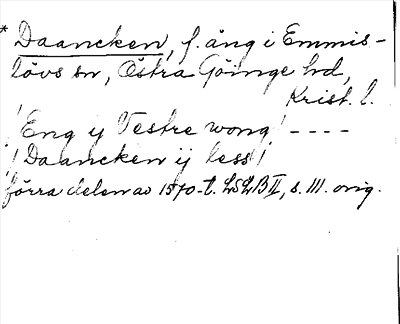 * Daancken, f. äng i Emmis-
lövs sn, Östra Göinge hd,
Krist. l.
! Eng ij Vestre wong! ----
! Daancken ij less!
förra delen av 1570-t. LSLB II, s. 111. orig.